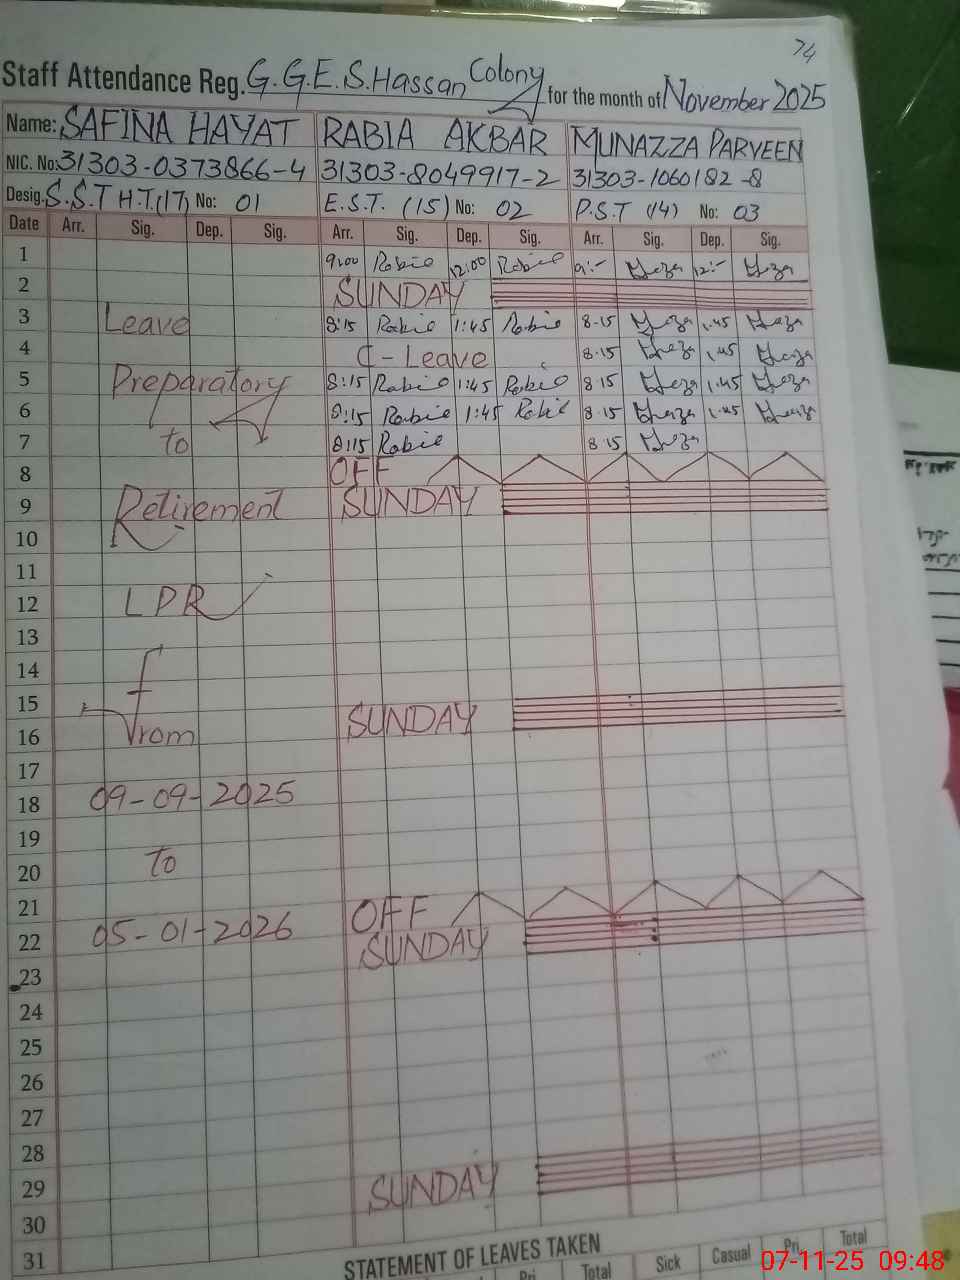 74
Staff Attendance Reg. G.G.E.S. Hassan Colony for the month of November 2025
Name: SAFINA HAYAT RABIA AKBAR MUNAZZA PARVEEN
NIC. No: 31303-0373866-4 31303-8049917-2 31303-1060182-8
Desig. S.S.T H.T.(17) No: 01 E.S.T. (15) No: 02 P.S.T (14) No: 03
Date Arr. Sig. Dep. Sig. Arr. Sig. Dep. Sig. Arr. Sig. Dep. Sig.
1 9:00 Rabie 12:00 Rabie 9:- 12:-
2 SUNDAY
3 Leave 8:15 Rabie 1:45 Rabie 8.15 1.45
4 C-Leave 8.15 1.45
5 Preparatory 8:15 Rabie 1:45 Rabie 8.15 1.45
6 8:15 Rabie 1:45 Rabie 8.15 1.45
7 to 8:15 Rabie 8.15
8 OFF
9 Retirement SUNDAY
10
11
12 LPR
13
14
15 SUNDAY
16 From
17
18 09-09-2025
19
20 To
21 OFF
22 05-01-2026 SUNDAY
23
24
25
26
27
28
29 SUNDAY
30
31 STATEMENT OF LEAVES TAKEN
Pri Total Sick Casual Pri. Total
07-11-25 09:48